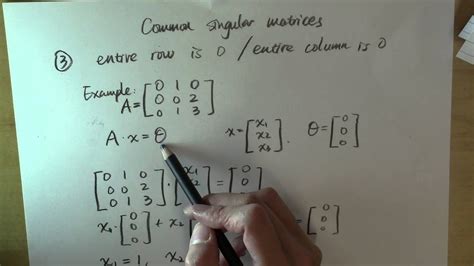 Common singular matrices
③ entire row is 0 / entire column is 0
Example:
A = [0 1 0; 0 0 2; 0 1 3]
A · x = θ x = [x₁; x₂; x₃]. θ = [0; 0; 0]
[0 1 0; 0 0 2; 0 1 3] · [x₁; x₂ = [0; 0; 0]
· [0; 0; 0] + x = [0; 0; 0]
x₁ = 1, x